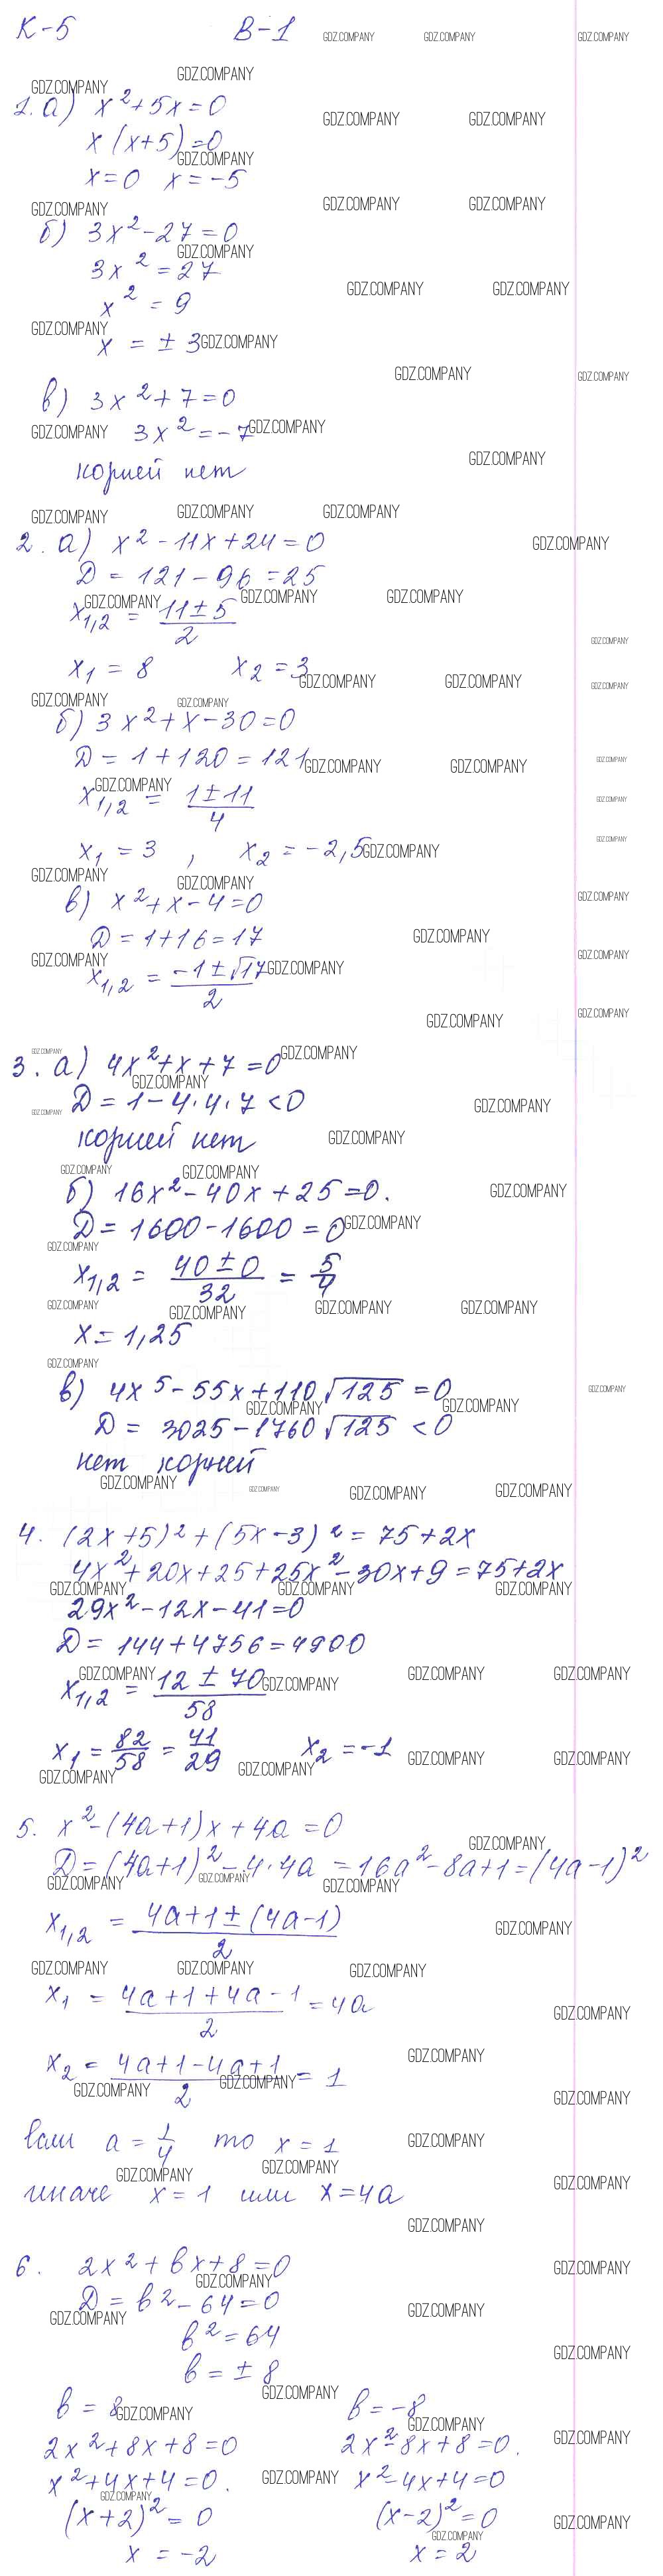 К-5 В-1
1. а) x² + 5x = 0
x(x+5) = 0
x = 0 x = -5
б) 3x² - 27 = 0
3x² = 27
x² = 9
x = ± 3
в) 3x² + 7 = 0
3x² = -7
корней нет
2. а) x² - 11x + 24 = 0
Д = 121 - 96 = 25
x₁,₂ = (11 ± 5)/2
x₁ = 8 x₂ = 3
б) 3x² + x - 30 = 0
Д = 1 + 120 = 121
x₁,₂ = (1 ± 11)/4
x₁ = 3 , x₂ = -2,5
в) x² + x - 4 = 0
Д = 1 + 16 = 17
x₁,₂ = (-1 ± √17)/2
3. а) 4x² + x + 7 = 0
Д = 1 - 4·4·7 < 0
корней нет
б) 16x² - 40x + 25 = 0.
Д = 1600 - 1600 = 0
x₁,₂ = (40 ± 0)/32 = 5/4
x = 1,25
в) 4x⁵ - 55x + 110√125 = 0
Д = 3025 - 1760√125 < 0
нет корней
4. (2x+5)² + (5x-3)² = 75 + 2x
4x² + 20x + 25 + 25x² - 30x + 9 = 75 + 2x
29x² - 12x - 41 = 0
Д = 144 + 4756 = 4900
x₁,₂ = (12 ± 70)/58
x₁ = 82/58 = 41/29 x₂ = -1
5. x² - (4a+1)x + 4a = 0
Д = (4a+1)² - 4·4a = 16a² - 8a + 1 = (4a-1)²
x₁,₂ = (4a+1 ± (4a-1))/2
x₁ = (4a+1+4a-1)/2 = 4a
x₂ = (4a+1-4a+1)/2 = 1
если a = 1/4 то x = 1
иначе x = 1 или x = 4a
6. 2x² + bx + 8 = 0
Д = b² - 64 = 0
b² = 64
b = ± 8
b = 8 b = -8
2x² + 8x + 8 = 0 2x² - 8x + 8 = 0.
x² + 4x + 4 = 0. x² - 4x + 4 = 0
(x+2)² = 0 (x-2)² = 0
x = -2 x = 2
GDZ.COMPANY